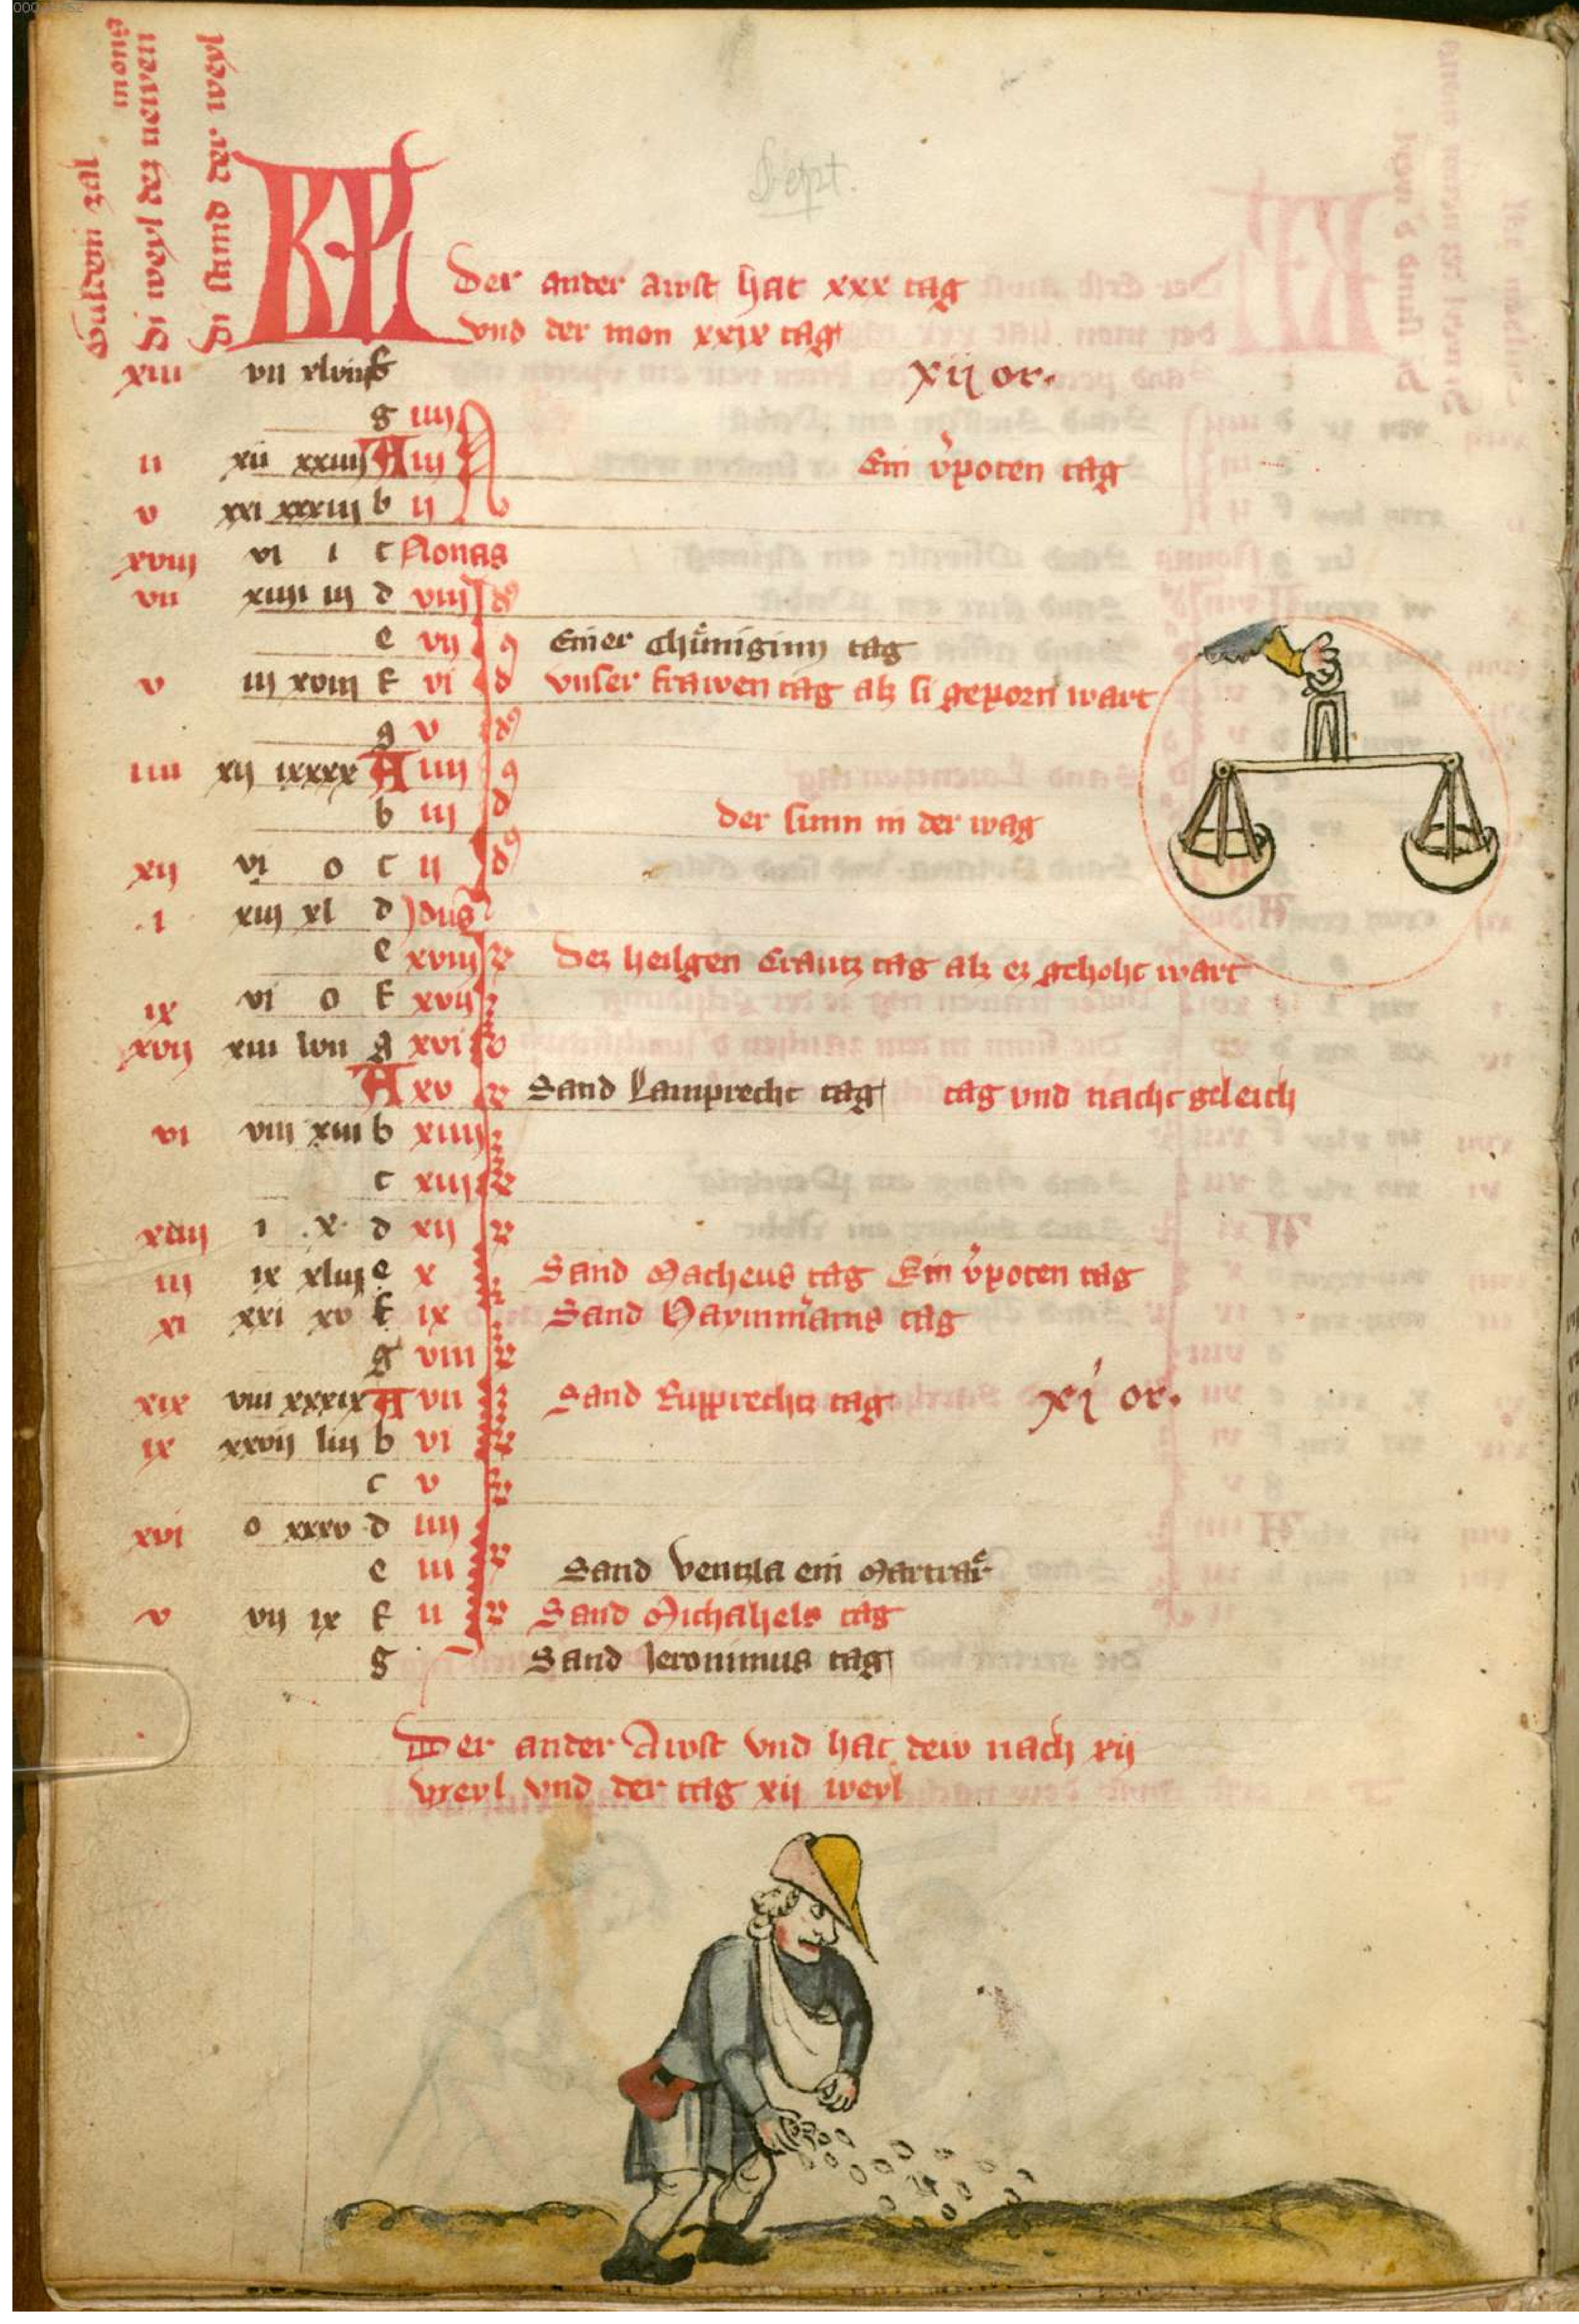 Guldein zal
Di newen des newen
mons
Di stund der newi
Sept.
KPL
Der ander awst hat xxx tag
vnd der mon xxix tag
xiii vii xlviii f xij or.
g iiij N
ii xii xxiiij A iij Ein v̓poten tag
v xxi xxxiij b ij
xviij vi i c Nonas
vii xiiij iij d viij Id9
e vij Einer Chünigin tag
v iij xviij f vi vnser frawen tag alz si geporn wart
g v
iiii xij ixxxx A iiij
b iij der sunn in der wag
xij vi o c ij
i xiij xl d Idus
e xviij Dez heilgen Crautz tag alz ez gehoht wart
ix vi o f xvij
xvij xiii lvii g xvi
A xv Sand Lamprecht tag tag vnd nacht geleich
vi viij xiii b xiiij
c xiij
xiiij i x d xij
iij ix xliij e x Sand Matheus tag Ein v̓poten tag
xi xxi xv f ix Sand Haymmrams tag
g viii
xix viii xxxix A vii Sand Rupprechtz tag xi or.
ix xxvij liij b vi
c v
xvi o xxxv d iiij
e iii Sand Ventzla ein Martrar
v vij ix f ii Sand Michahels tag
g Sand Jeronimus tag
Der ander Awst vnd hat dew nach xij
weyl vnd der tag xij weyl